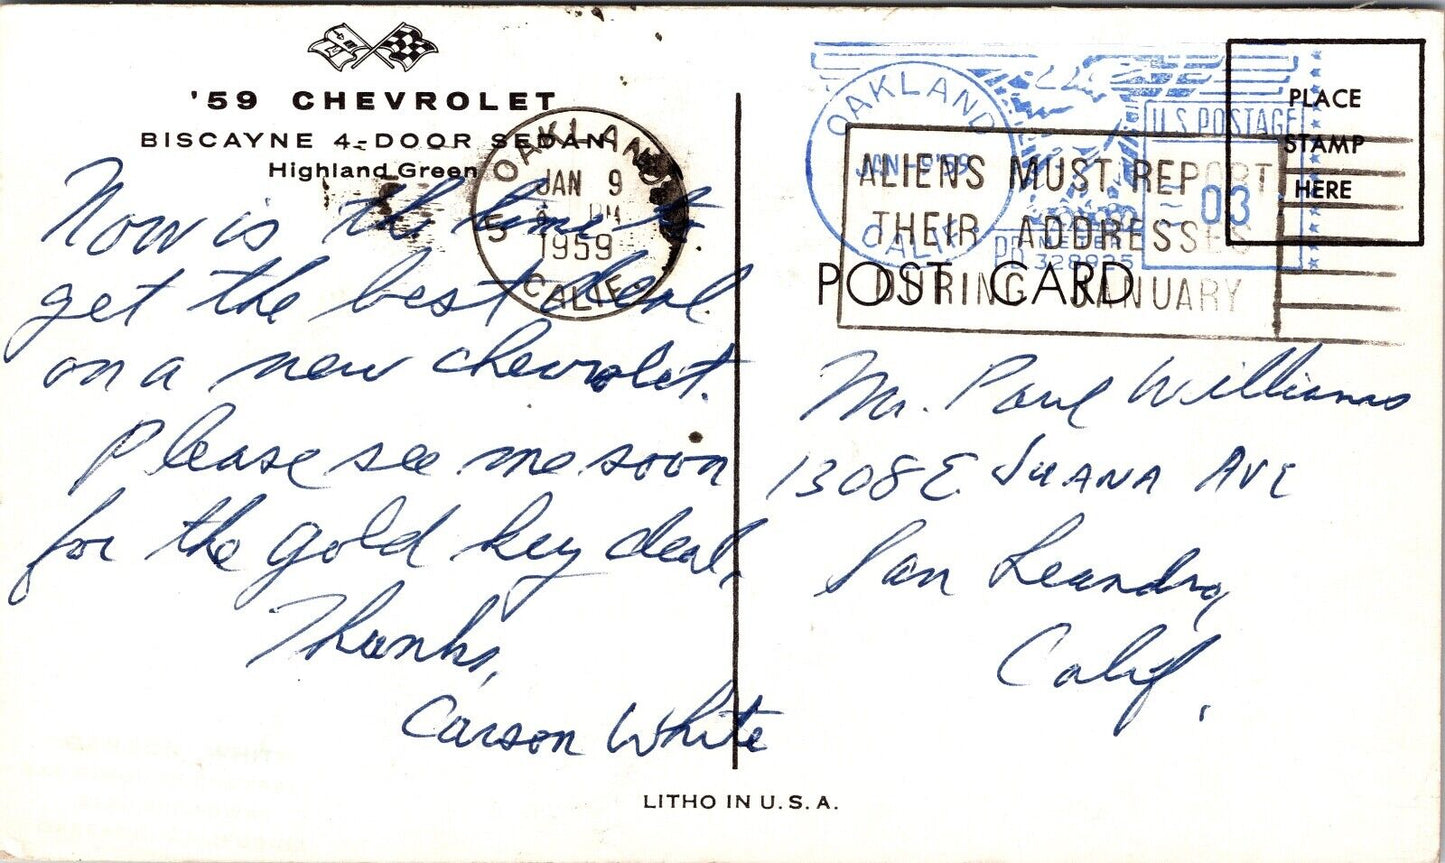 '59 CHEVROLET
BISCAYNE 4-DOOR SEDAN
Highland Green
Now is the time to
get the best deal
on a new chevrolet.
Please see me soon
for the gold key deal.
Thanks,
Carson White
OAKLAND
JAN 9
PM
1959
CALIF.
OAKLAND
JAN -9'59
CALIF
U.S. POSTAGE
03
PB METER
328925
ALIENS MUST REPORT
THEIR ADDRESSES
DURING JANUARY
PLACE
STAMP
HERE
POST CARD
Mr. Paul Williams
1308 E. JUANA AVE
San Leandro,
Calif.
LITHO IN U.S.A.